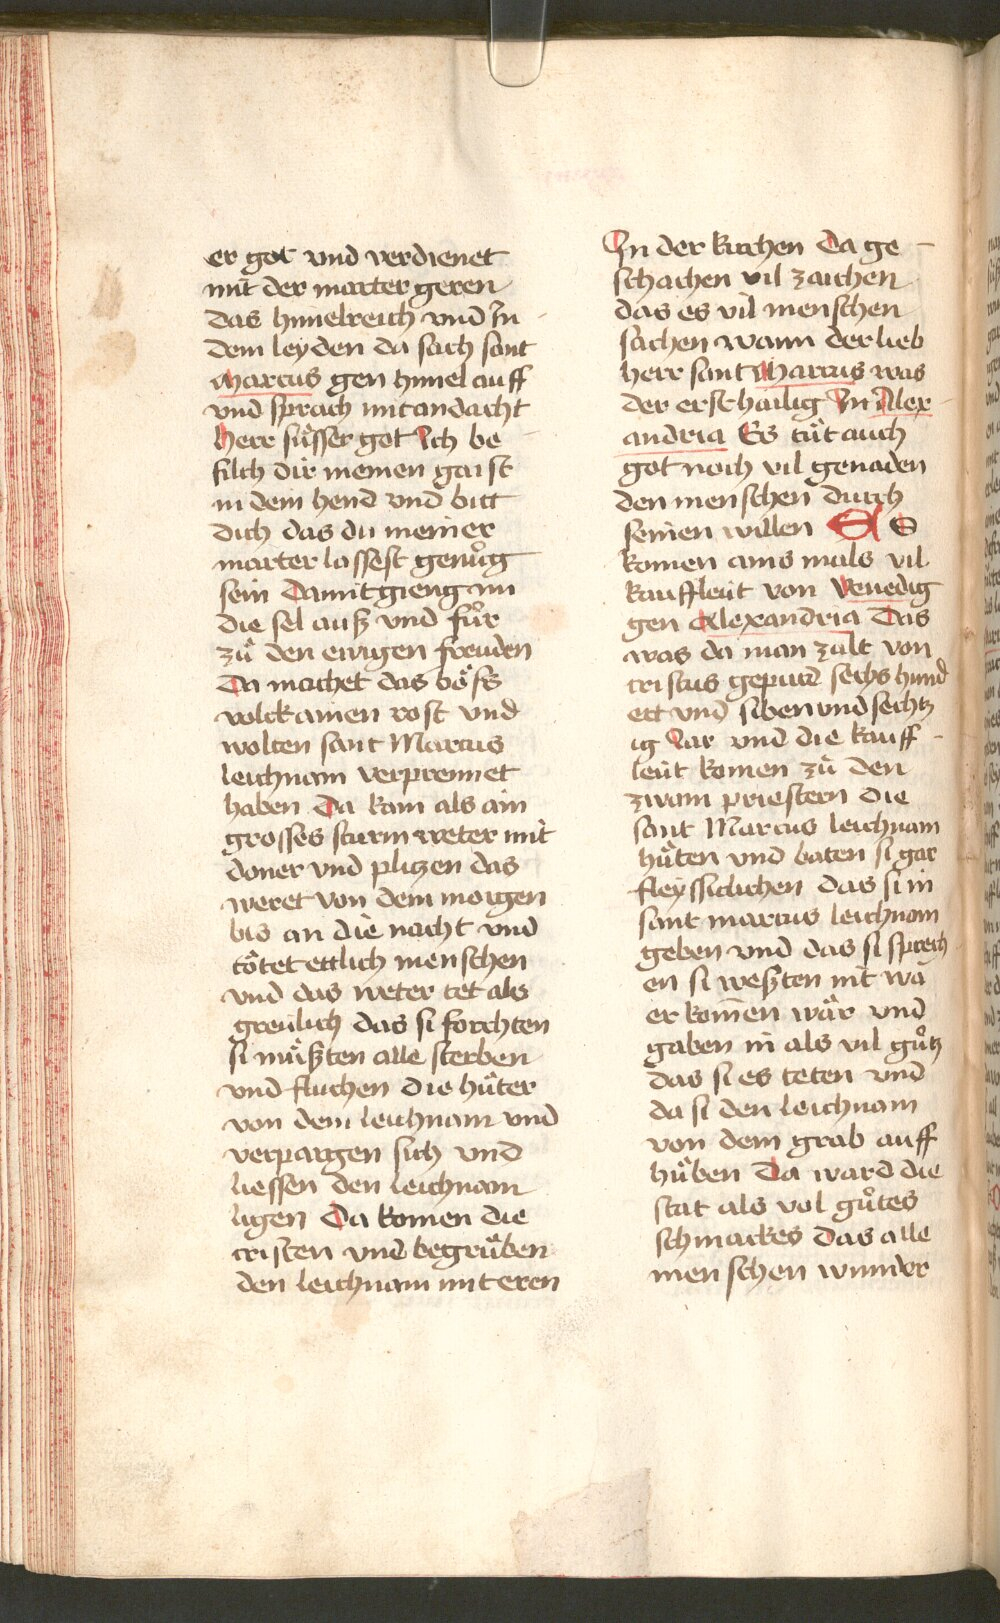 er got vnd verdienet
mit der marter geren
das himelreich vnd In
dem leyden da sach sant
Marcus gen himel auff
vnd sprach mit andacht
Herr süsser got Ich be
filch dir meinen gaist
in dein hend vnd bitt
dich das du meiner
marter lassest genůg
sein Damit gieng im
die sel auß vnd fůr
zů den ewigen freuden
Da machet das böss
volck ainen rost vnd
wolten sant Marcus
leichnam verprennet
haben Da kam als ain
grosses sturm weter mit
doner vnd plitzen das
weret von dem morgen
bis an die nacht vnd
tötet ettlich menschen
vnd das weter tet als
greülich das si forchten
si müßten alle sterben
vnd fluchen die hüter
von dem leichnam vnd
verpargen sich vnd
liessen den leichnam
ligen Da komen die
cristen vnd begrůben
den leichnam mit eren
In der kirchen Da ge
schachen vil zaichen
das es vil menschen
sachen wann der lieb
herr sant Marcus was
der erst hailig In Alex
andria Es tůt auch
got noch vil genaden
den menschen durch
seinen willen Es
komen ains mals vil
kauffleüt von Venedig
gen Alexandria Das
was da man zalt von
cristus gepurd sechs hund
ert vnd siben vnd sechtz
ig Iar vnd die kauff
leüt komen zů den
zwain priestern die
sant Marcus leichnam
hüten vnd baten si gar
fleyssiclichen das si in
sant marcus leichnam
geben vnd das si sprech
en si weßten nit wa
er komen wär vnd
gaben in als vil gůtz
das si es teten vnd
da si den leichnam
von dem grab auff
hůben Da ward die
stat als vol gůtes
schmackes Das alle
menschen wunder